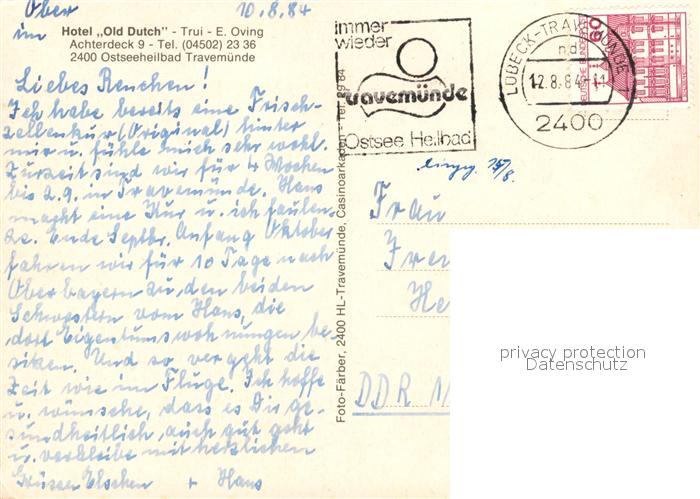 Ober 10.8.84
im Hotel „Old Dutch" - Trui - E. Oving
Achterdeck 9 - Tel. (04502) 23 36
2400 Ostseeheilbad Travemünde
Liebes Renchen!
Ich habe bereits eine Frisch-
zellenkur (Original) hinter
mir u. fühle mich sehr wohl.
Zurzeit sind wir für 4 Wochen
bis 2.9. in Travemünde. Hans
macht eine Kur u. ich faulen-
ze. Ende Septbr. Anfang Oktober
fahren wir für 10 Tage nach
Oberbayern zu den beiden
Schwestern vom Hans, die
dort Eigentumswohnungen be-
sitzen. Und so vergeht die
Zeit wie im Fluge. Ich hoffe
u. wünsche, dass es Dir ge-
sundheitlich, auch gut geht
u. verbleibe mit herzlichen
Grüssen Elschen + Hans
Foto-Färber, 2400 HL-Travemünde, Casinoarkaden - Tel.
immer
wieder
travemünde
Ostsee Heilbad
LÜBECK-TRAVEMÜNDE
nd
12.8.84-11
2400
60
DEUTSCHE BUNDES
Frau
DDR
privacy protection
Datenschutz